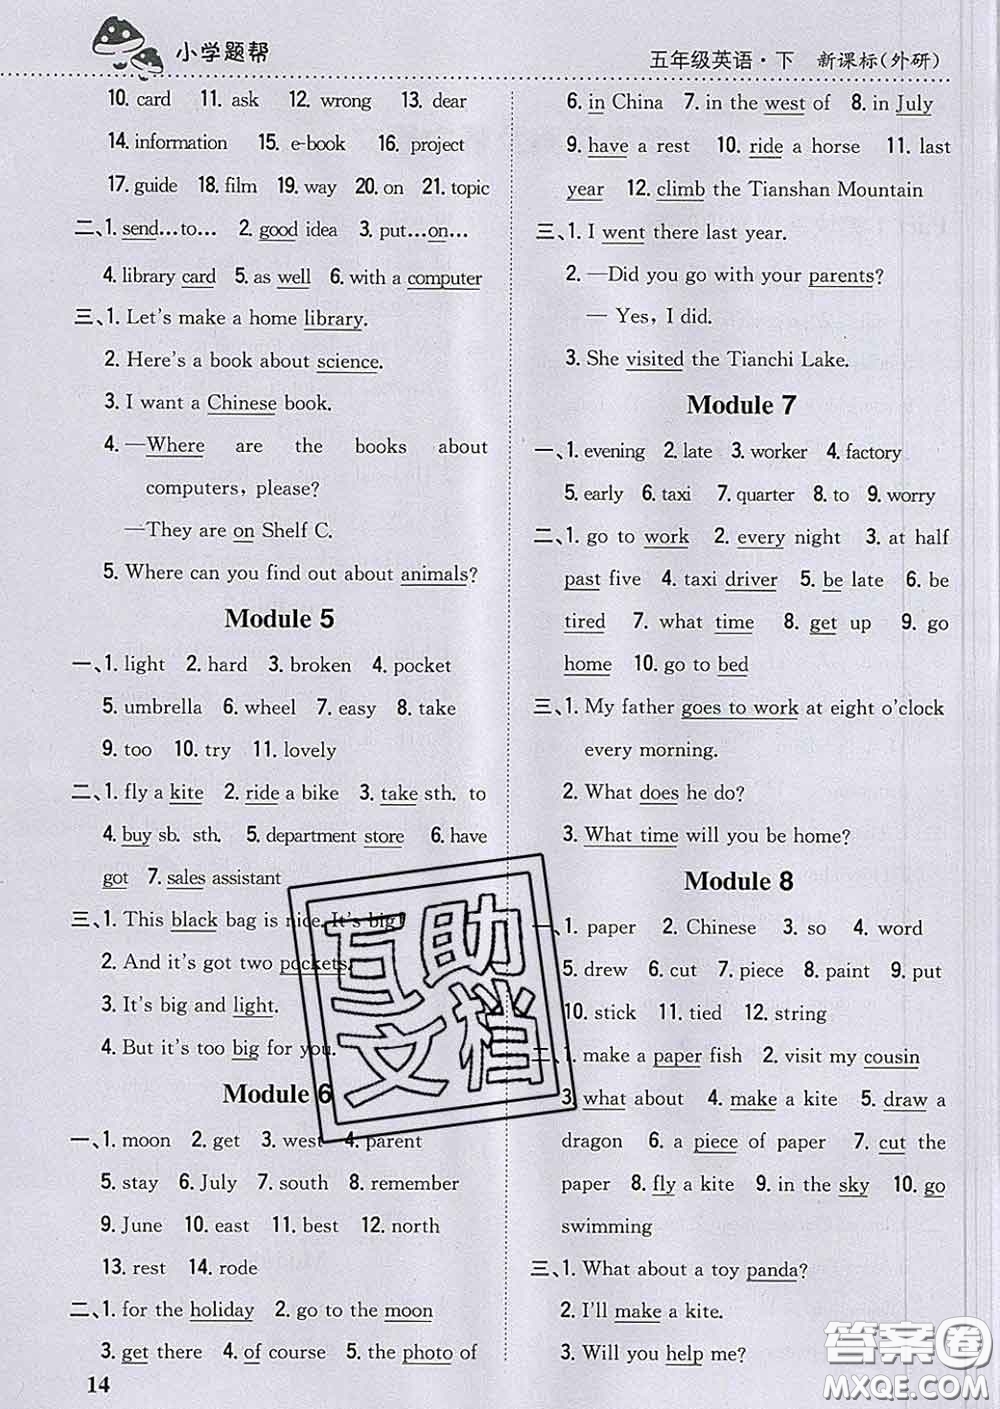 小学题帮
五年级英语·下 新课标(外研)
10. card 11. ask 12. wrong 13. dear
14. information 15. e-book 16. project
17. guide 18. film 19. way 20. on 21. topic
二、1. send…to… 2. good idea 3. put…on…
4. library card 5. as well 6. with a computer
三、1. Let's make a home library.
2. Here's a book about science.
3. I want a Chinese book.
4. —Where are the books about
computers, please?
—They are on Shelf C.
5. Where can you find out about animals?
Module 5
一、1. light 2. hard 3. broken 4. pocket
5. umbrella 6. wheel 7. easy 8. take
9. too 10. try 11. lovely
二、1. fly a kite 2. ride a bike 3. take sth. to
4. buy sb. sth. 5. department store 6. have
got 7. sales assistant
三、1. This black bag is nice. It's big!
2. And it's got two pockets.
3. It's big and light.
4. But it's too big for you.
Module 6
一、1. moon 2. get 3. west 4. parent
5. stay 6. July 7. south 8. remember
9. June 10. east 11. best 12. north
13. rest 14. rode
二、1. for the holiday 2. go to the moon
3. get there 4. of course 5. the photo of
14
6. in China 7. in the west of 8. in July
9. have a rest 10. ride a horse 11. last
year 12. climb the Tianshan Mountain
三、1. I went there last year.
2. —Did you go with your parents?
— Yes, I did.
3. She visited the Tianchi Lake.
Module 7
一、1. evening 2. late 3. worker 4. factory
5. early 6. taxi 7. quarter 8. to 9. worry
二、1. go to work 2. every night 3. at half
past five 4. taxi driver 5. be late 6. be
tired 7. what time 8. get up 9. go
home 10. go to bed
三、1. My father goes to work at eight o'clock
every morning.
2. What does he do?
3. What time will you be home?
Module 8
一、1. paper 2. Chinese 3. so 4. word
5. drew 6. cut 7. piece 8. paint 9. put
10. stick 11. tied 12. string
二、1. make a paper fish 2. visit my cousin
3. what about 4. make a kite 5. draw a
dragon 6. a piece of paper 7. cut the
paper 8. fly a kite 9. in the sky 10. go
swimming
三、1. What about a toy panda?
2. I'll make a kite.
3. Will you help me?
互助
文档
答案圈
MXQE.COM